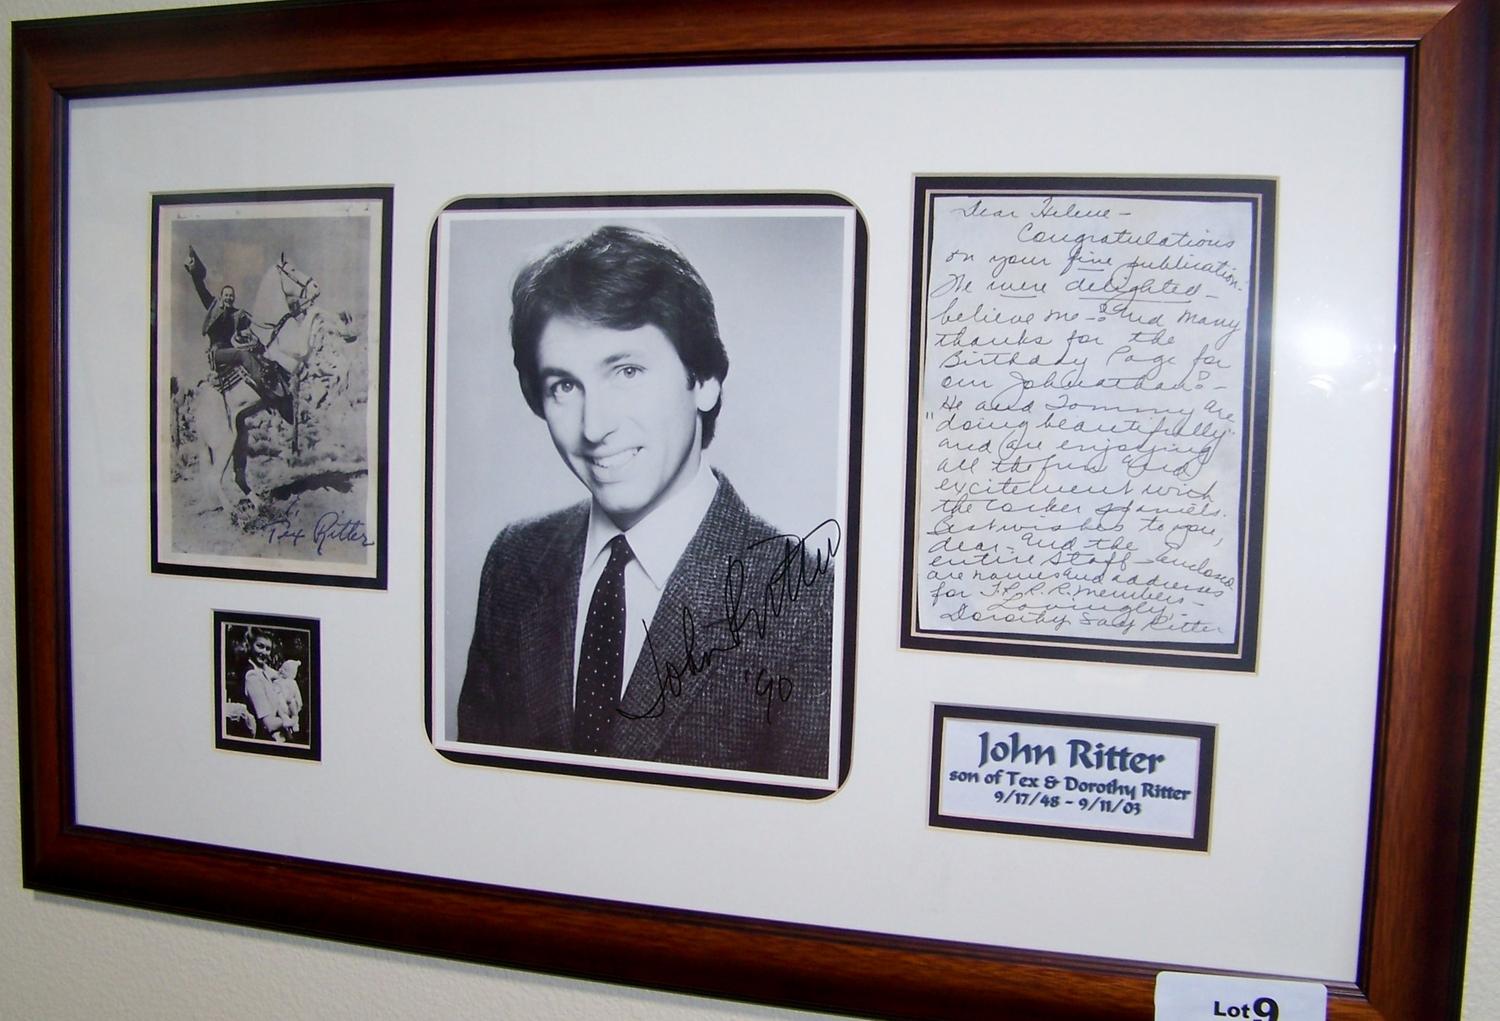 Tex Ritter
John Ritter
'90
Dear Helene -
Congratulations
on your fine publication.
We were delighted -
believe me - and many
thanks for the
Birthday Page for
our Johnathan -
He and Tommy are
"doing beautifully"
and are enjoying
all the fun and
excitement with
the Cocker Spaniels.
Best wishes to you,
dear - and the
entire staff - enclosed
are names and addresses
for members -
Lovingly,
Dorothy Fay Ritter
John Ritter
son of Tex & Dorothy Ritter
9/17/48 - 9/11/03
Lot 9